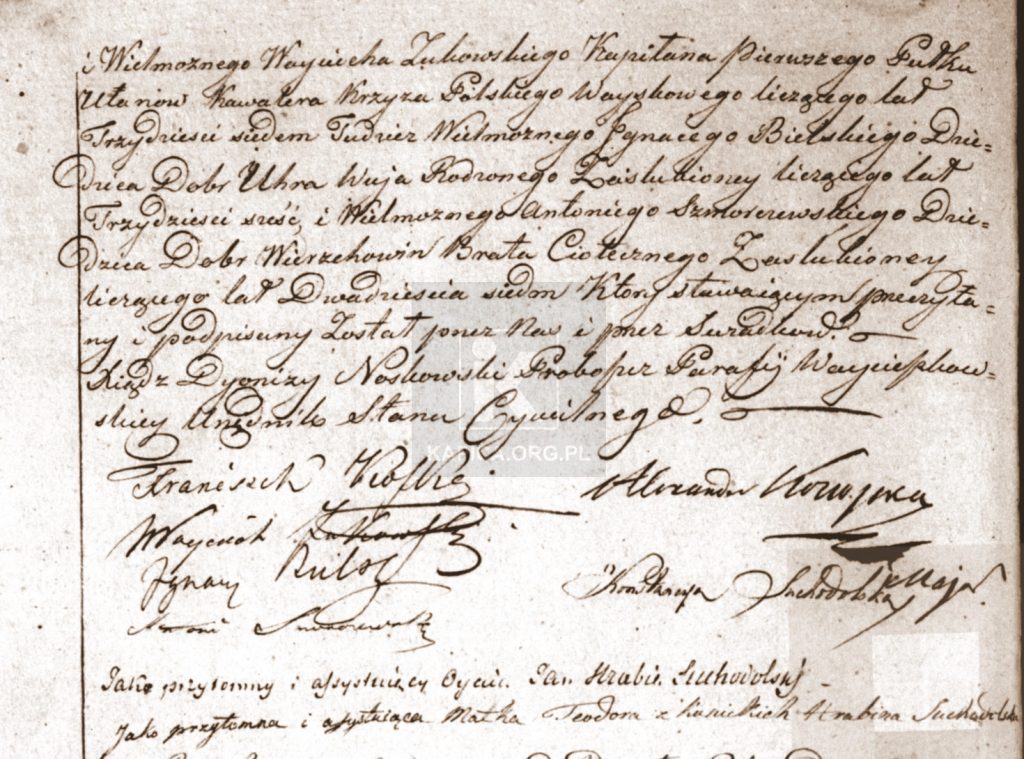 i Wielmoznego Wayciecha Zukowskiego Kapitana Pierwszego Pułku
Ułanow Kawalera Krzyza Polskiego Wayskowego liczącego lat
Trzydziesci siedem Tudziez Wielmoznego Ignacego Bielskiego Dzie=
dzica Dobr Uhra Wuja Rodzonego Zaslubioney liczącego lat
Trzydziesci sześć, i Wielmoznego Antoniego Szmorczewskiego Dzie=
dzica Dobr Wierzchowin Brata Ciotecznego Zaslubioney
liczącego lat Dwadziescia siedm Ktory stawaiącym przeczyta=
ny i podpisany Został przez Nas i przez
Xiądz Dyonizy Noskowski Proboszcz Parafij Wayciechow=
skiey Urzędnik Stanu Cywilnego.
KAFKA.ORG.PL
Franiszek
Alexander
Wayciech Zukowski
Ignacy
Konstancya Suchodolska
Antoni
Jako przytomny i assystuiący Oyciec Jan Hrabia Suchodolski
Jako przytomna i assystuiąca Matka Teodora z Kunickich Hrabina Suchodolska